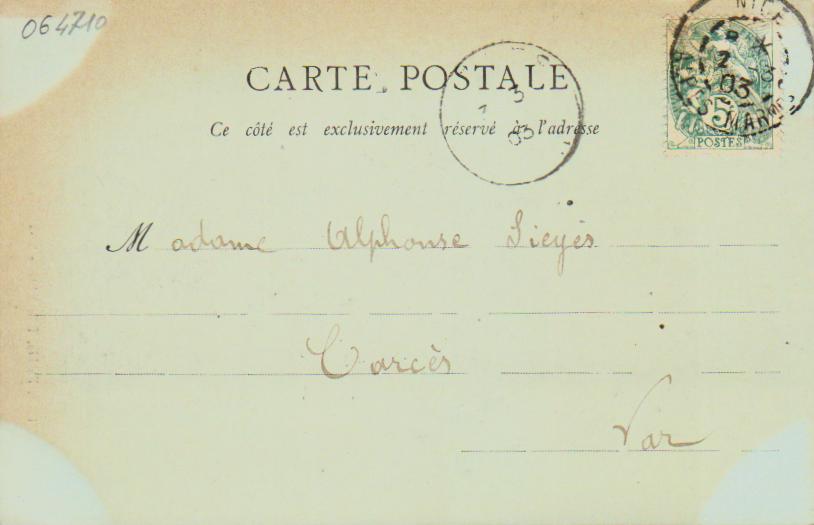 064710
CARTE POSTALE
Ce côté est exclusivement réservé à l'adresse
NICE
12
03
5
POSTES
1 3
03
Madame Alphonse Sieyès
Carcès
Var